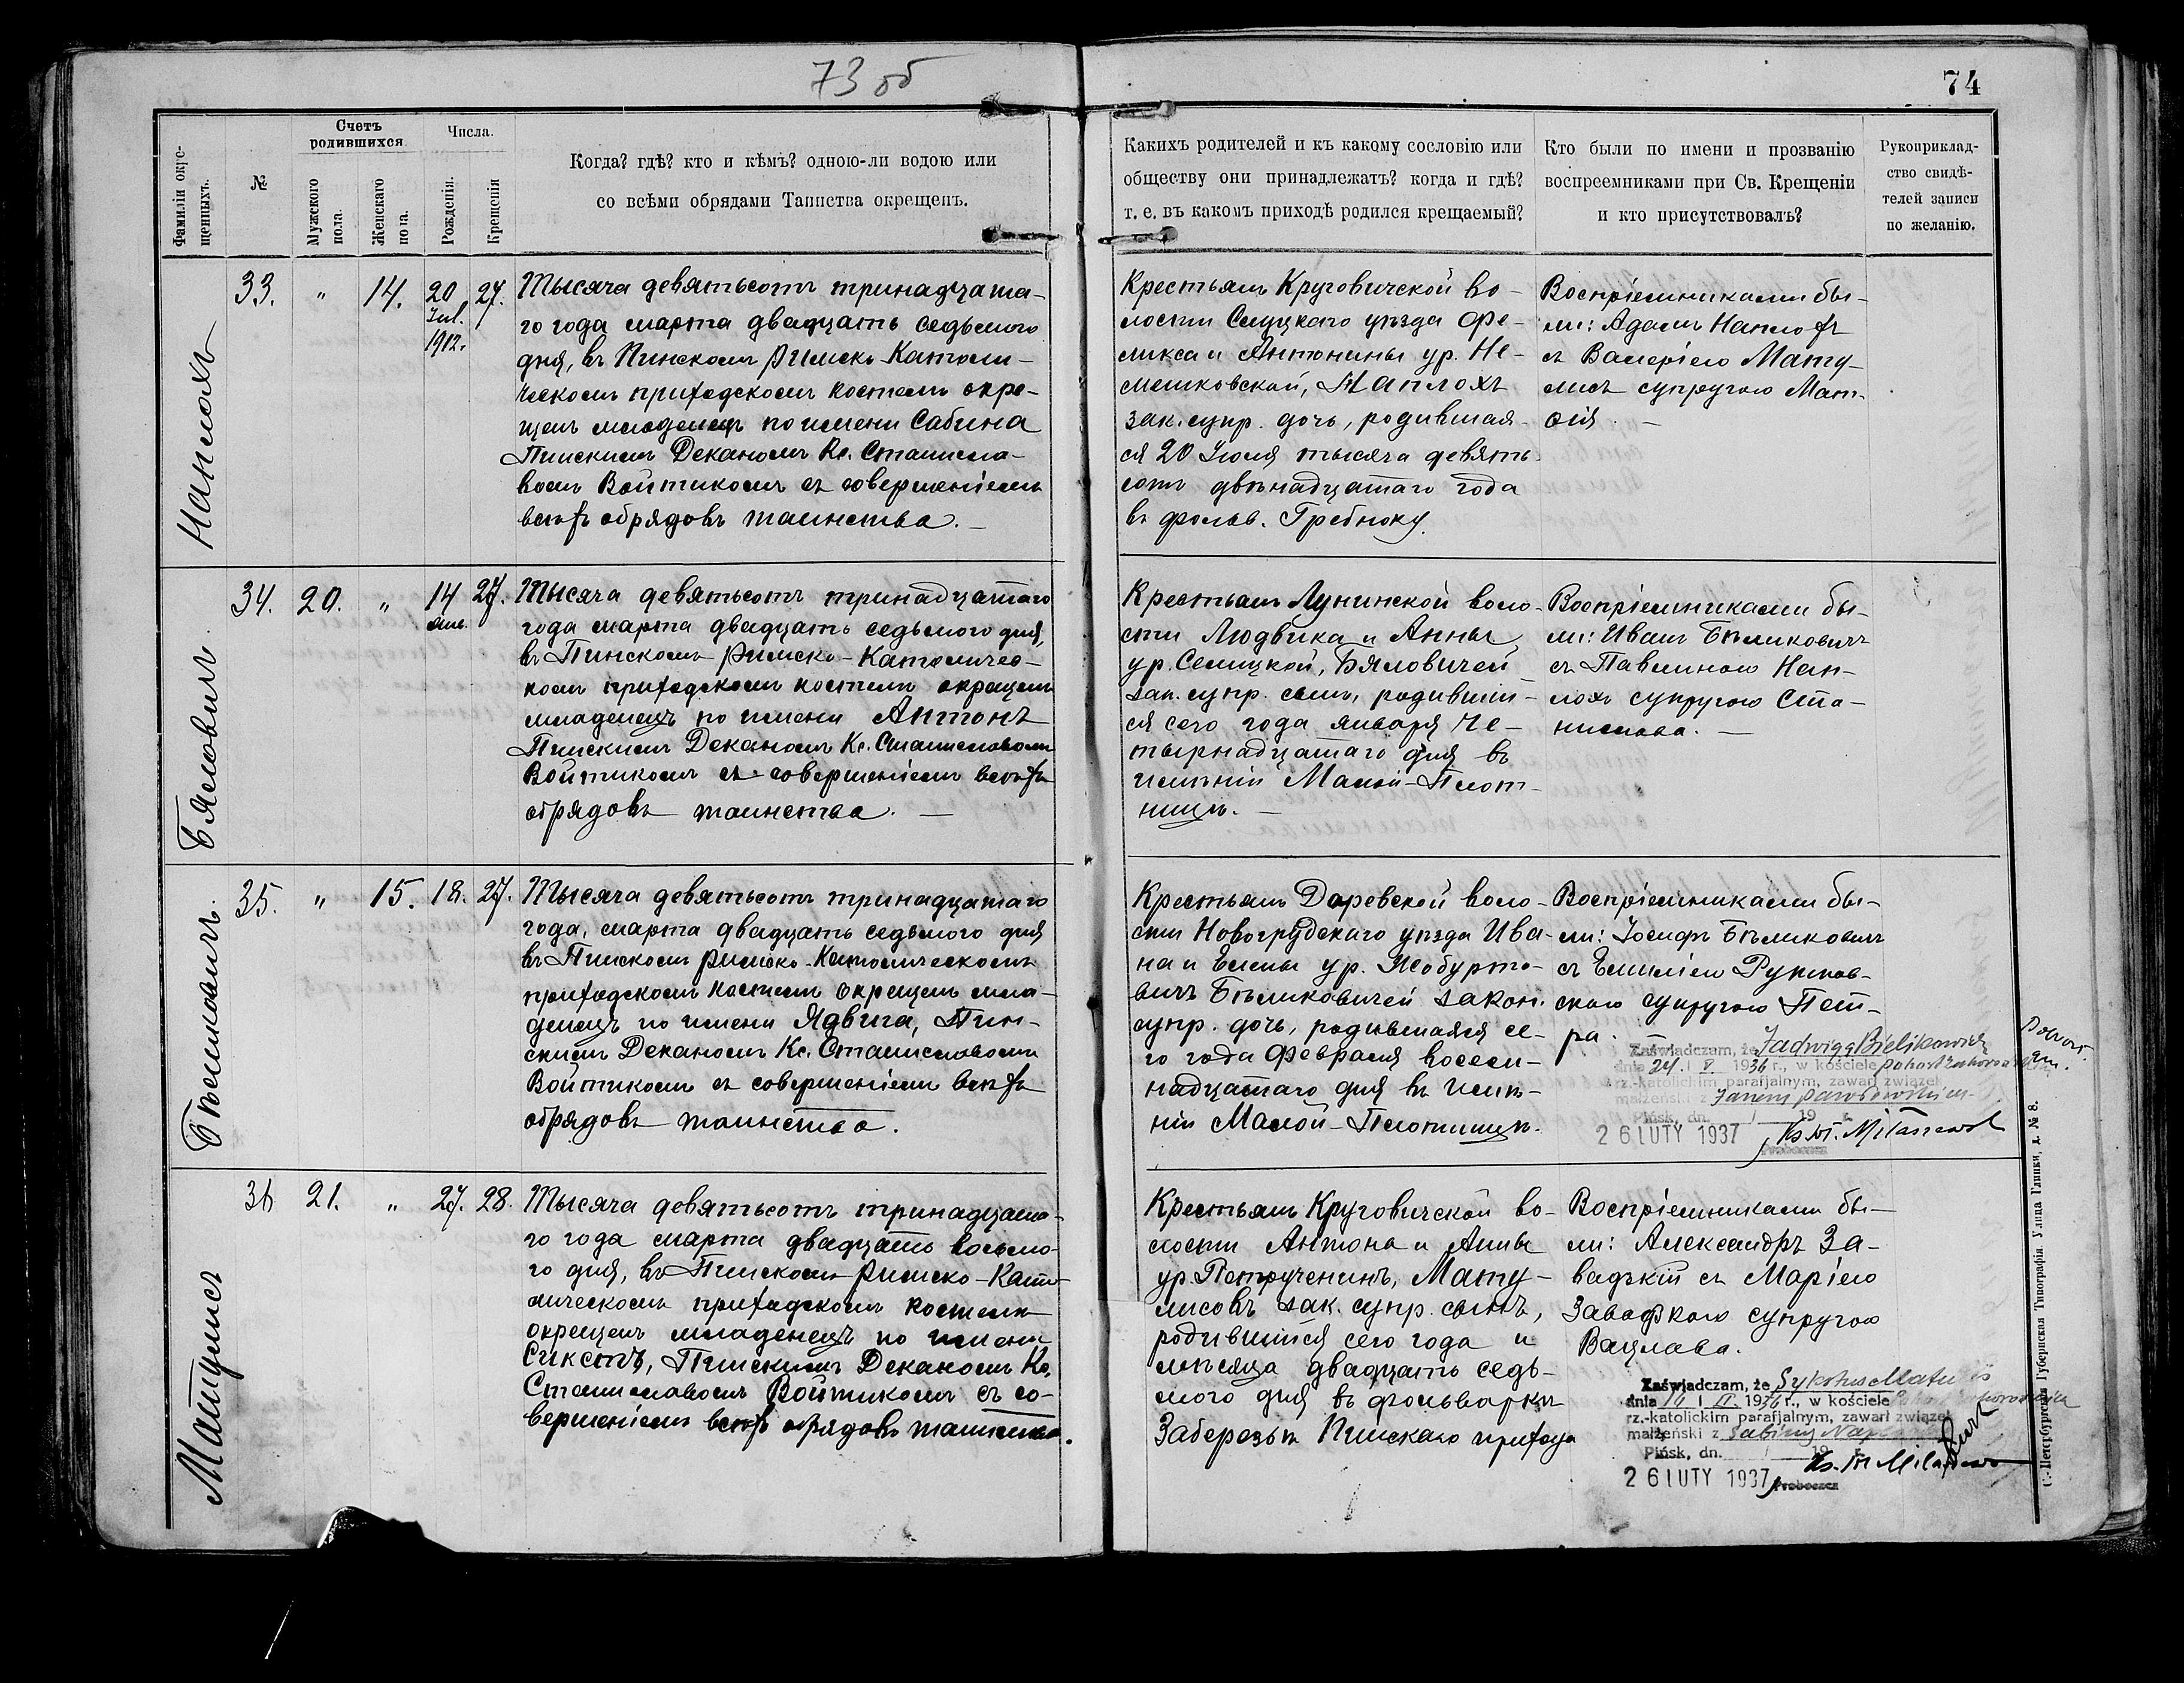 73 об
74
Фамиліи окре-
щенныхъ.
№
Счетъ
родившихся
Мужского
пола.
Женскаго
пола.
Числа.
Рожденія.
Крещенія
Когда? гдѣ? кто и кѣмъ? одною-ли водою или
со всѣми обрядами Таинства окрещенъ.
Какихъ родителей и къ какому сословію или
обществу они принадлежатъ? когда и гдѣ?
т. е. въ какомъ приходѣ родился крещаемый?
Кто были по имени и прозванію
воспреемниками при Св. Крещеніи
и кто присутствовалъ?
Рукоприклад-
ство свидѣ-
телей записи
по желанію.
Наплохъ
33. " 14. 20 27.
Іюл.
1912.
Тысяча девятьсотъ тринадцата-
го года марта двадцать седьмого
дня, въ Пинскомъ Римско-Католи-
ческомъ приходскомъ костелѣ окре-
щенъ младенецъ по имени Сабина
Пинскимъ Деканомъ Кс. Станисла-
вомъ Войтикомъ съ совершеніемъ
всѣхъ обрядовъ таинства. —
Крестьянъ Круговичской во-
лости Слуцкаго уѣзда Фе-
ликса и Антонины ур. Не-
мешковской, Наплохъ
зак. супр. дочь, родившая-
ся 20 Іюля тысяча девять-
сотъ двѣнадцатаго года
въ фольв. Гребноку.
Воспріемниками бы-
ли: Адамъ Наплохъ
съ Валеріею Мату-
лисъ супругою Мат-
ѳія. —
Бяловичъ.
34. 20. " 14 27.
янв.
Тысяча девятьсотъ тринадцатаго
года марта двадцать седьмого дня,
въ Пинскомъ Римско-Католичес-
комъ приходскомъ костелѣ окрещенъ
младенецъ по имени Антонъ
Пинскимъ Деканомъ Кс. Станиславомъ
Войтикомъ съ совершеніемъ всѣхъ
обрядовъ таинства. —
Крестьянъ Лунинской воло-
сти Людвика и Анны
ур. Селицкой, Бяловичей
зак. супр. сынъ, родившій-
ся сего года января че-
тырнадцатаго дня въ
имѣніи Малой-Плот-
ницѣ. —
Воспріемниками бы-
ли: Иванъ Бѣликовичъ
съ Павлиною Нап-
лохъ супругою Ста-
нислава. —
Бѣликовичъ.
35. " 15. 18. 27.
Тысяча девятьсотъ тринадцатаго
года, марта двадцать седьмого дня
въ Пинскомъ Римско-Католическомъ
приходскомъ костелѣ окрещенъ мла-
денецъ по имени Ядвига, Пин-
скимъ Деканомъ Кс. Станиславомъ
Войтикомъ съ совершеніемъ всѣхъ
обрядовъ таинства.
Крестьянъ Даревской воло-
сти Новогрудскаго уѣзда Ива-
на и Елены ур. Жобурто-
вичъ Бѣликовичей закон.
супр. дочь, родившаяся се-
го года Февраля восем-
надцатаго дня въ имѣ-
ніи Малой-Плотницѣ.
Воспріемниками бы-
ли: Іосифъ Бѣликовичъ
съ Емиліею Рутков-
скою супругою Пет-
ра. —
Zaświadczam, że Jadwiga Bielikowicz
dnia 24. I V 1936 r., w kościele
rz.-katolickim parafjalnym, zawarł związek
małżeński z Janem
Pińsk, dn. / 19 r.
26 LUTY 1937
Proboszcz
Матулисъ
36 21. " 27. 28.
Тысяча девятьсотъ тринадцата-
го года марта двадцать восьмо-
го дня, въ Пинскомъ Римско-Като-
лическомъ приходскомъ костелѣ
окрещенъ младенецъ по имени
Сикстъ, Пинскимъ Деканомъ Кс.
Станиславомъ Войтикомъ съ со-
вершеніемъ всѣхъ обрядовъ таинства.
Крестьянъ Круговичской во-
лости Антона и Анны
ур. Петрученинъ, Мату-
лисовъ зак. супр. сынъ,
родившійся сего года и
мѣсяца двадцать седь-
мого дня въ фольваркѣ
Заберезьѣ Пинскаго прихода
Воспріемниками бы-
ли: Александръ За-
вадзкій съ Маріею
Завадзкою супругою
Вацлава.
Zaświadczam, że
dnia 16 I II 1936 r., w kościele
rz.-katolickim parafjalnym, zawarł związek
małżeński z Sabiną
Pińsk, dn. / 19 r.
26 LUTY 1937
Proboszcz
С.-Петербургская Губернская Типографія. Улица Глинки, д. № 8.